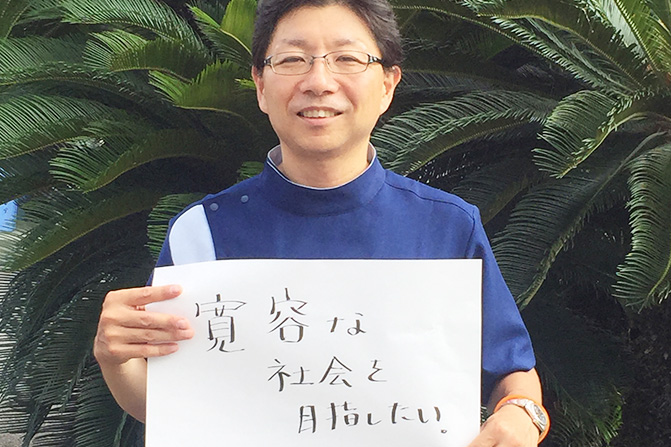 寛容な
社会を
目指したい!